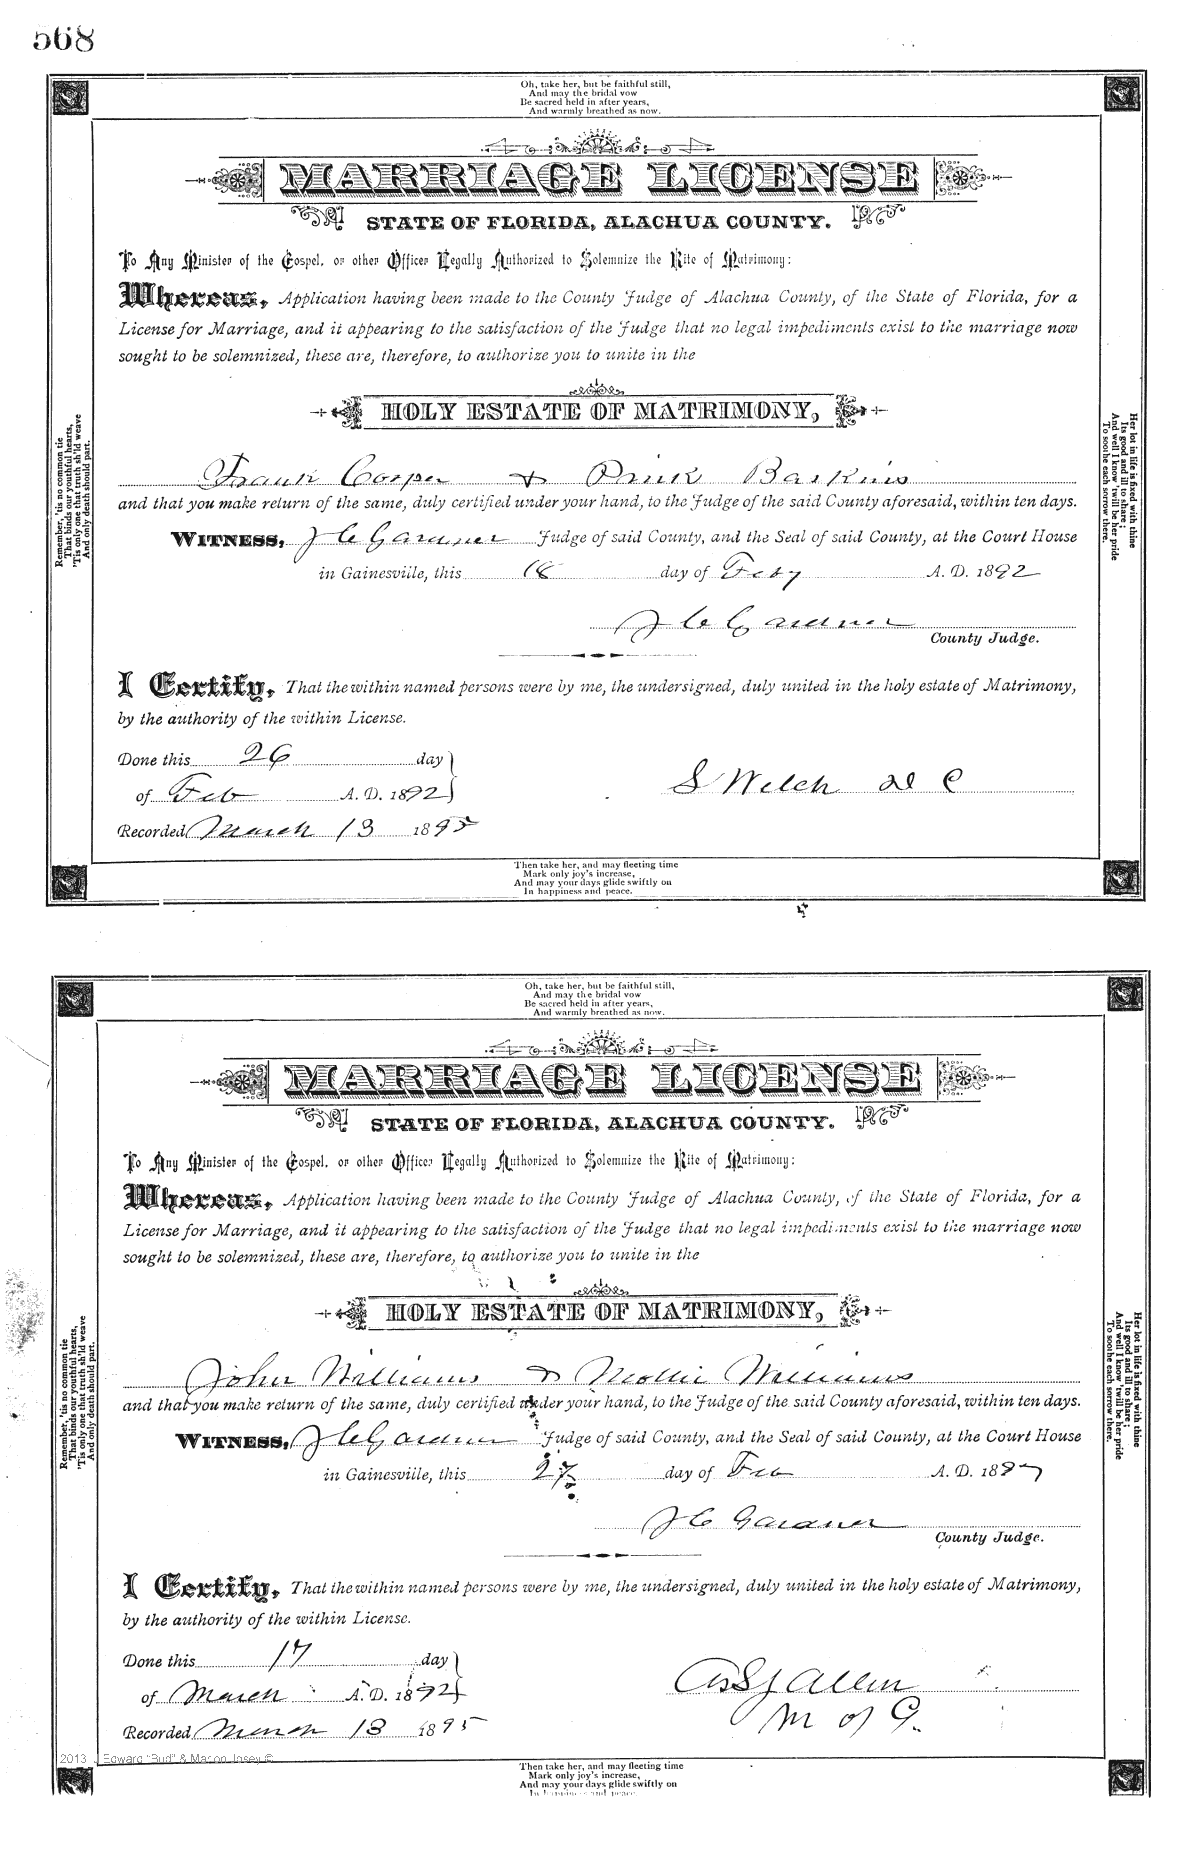 568
Oh, take her, but be faithful still,
And may the bridal vow
Be sacred held in after years,
And warmly breathed as now.
MARRIAGE LICENSE
STATE OF FLORIDA, ALACHUA COUNTY.
To Any Minister of the Gospel, or other Officer Legally Authorized to Solemnize the Rite of Matrimony:
Whereas, Application having been made to the County Judge of Alachua County, of the State of Florida, for a
License for Marriage, and it appearing to the satisfaction of the Judge that no legal impediments exist to the marriage now
sought to be solemnized, these are, therefore, to authorize you to unite in the
HOLY ESTATE OF MATRIMONY,
Frank Cooper & Prink Baskins
and that you make return of the same, duly certified under your hand, to the Judge of the said County aforesaid, within ten days.
WITNESS, J C Gardner Judge of said County, and the Seal of said County, at the Court House
in Gainesville, this 18 day of Feby A. D. 1892
J C Gardner
County Judge.
I Certify, That the within named persons were by me, the undersigned, duly united in the holy estate of Matrimony,
by the authority of the within License.
Done this 26 day
of Feb A. D. 1892
S Welch
Recorded March 13 1895
Remember, 'tis no common tie
That binds our youthful hearts,
'Tis only one that truth sh'ld weave
And only death should part.
Her lot in life is fixed with thine
Its good and ill to share;
And well I know 'twill be her pride
To soothe each sorrow there.
Then take her, and may fleeting time
Mark only joy's increase,
And may your days glide swiftly on
In happiness and peace.
Oh, take her, but be faithful still,
And may the bridal vow
Be sacred held in after years,
And warmly breathed as now.
MARRIAGE LICENSE
STATE OF FLORIDA, ALACHUA COUNTY.
To Any Minister of the Gospel, or other Officer Legally Authorized to Solemnize the Rite of Matrimony:
Whereas, Application having been made to the County Judge of Alachua County, of the State of Florida, for a
License for Marriage, and it appearing to the satisfaction of the Judge that no legal impediments exist to the marriage now
sought to be solemnized, these are, therefore, to authorize you to unite in the
HOLY ESTATE OF MATRIMONY,
John Williams & Mollie Williams
and that you make return of the same, duly certified under your hand, to the Judge of the said County aforesaid, within ten days.
WITNESS, J C Gardner Judge of said County, and the Seal of said County, at the Court House
in Gainesville, this 27 day of Feb A. D. 189
J C Gardner
County Judge.
I Certify, That the within named persons were by me, the undersigned, duly united in the holy estate of Matrimony,
by the authority of the within License.
Done this 17 day
of March A. D. 1892
Allen
M of G.
Recorded March 13 1895
Remember, 'tis no common tie
That binds our youthful hearts,
'Tis only one that truth sh'ld weave
And only death should part.
Her lot in life is fixed with thine
Its good and ill to share;
And well I know 'twill be her pride
To soothe each sorrow there.
2013 J Edward "Bud" & Macon Josey ©
Then take her, and may fleeting time
Mark only joy's increase,
And may your days glide swiftly on
In happiness and peace.